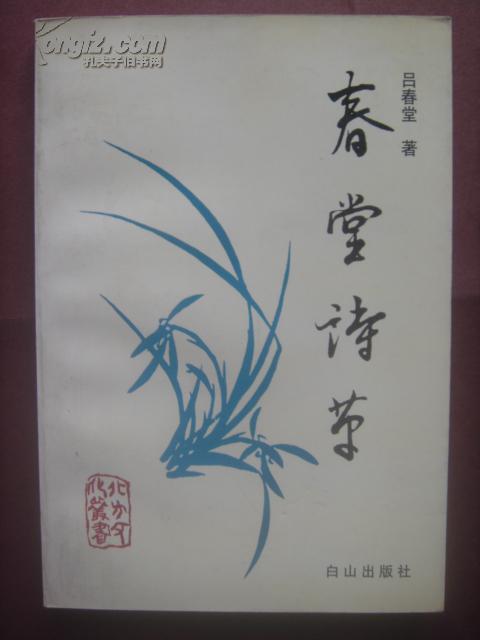 ongiz.com
孔夫子旧书网
吕春堂 著
春堂诗草
北方文
化丛书
白山出版社